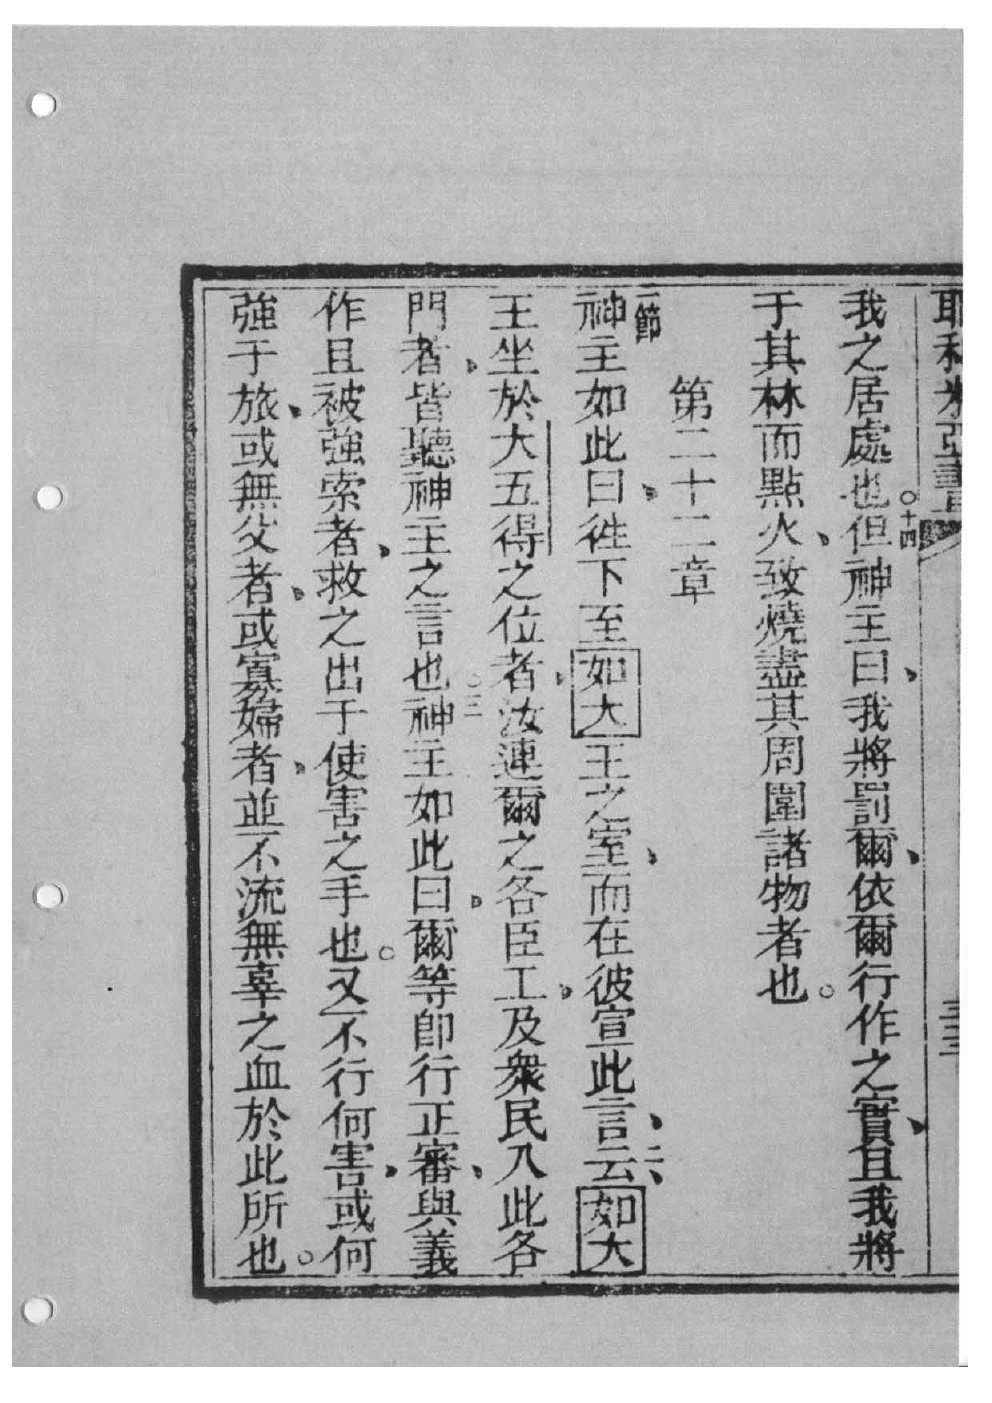 耶利米亞書
我之居處也。十四但神主曰、我將罰爾、依爾行作之實、且我將
于其林而點火、致燒盡其周圍諸物者也。
第二十二章
一節神主如此曰、徃下至如大王之室、而在彼宣此言、云、二如大
王坐於大五得之位者、汝連爾之各臣工、及衆民入此各
門者、皆聽神主之言也。三神主如此曰、爾等卽行正審、與義
作且被強索者、救之出于使害之手也。又不行何害、或何
強于旅、或無父者、或寡婦者、並不流無辜之血於此所也。